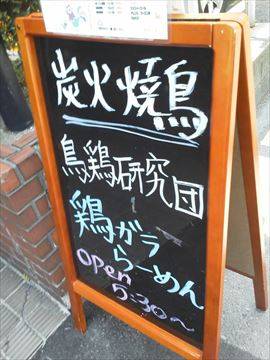 炭火焼鳥
鳥鶏研究団
鶏ガラ
らーめん
open
5:30〜